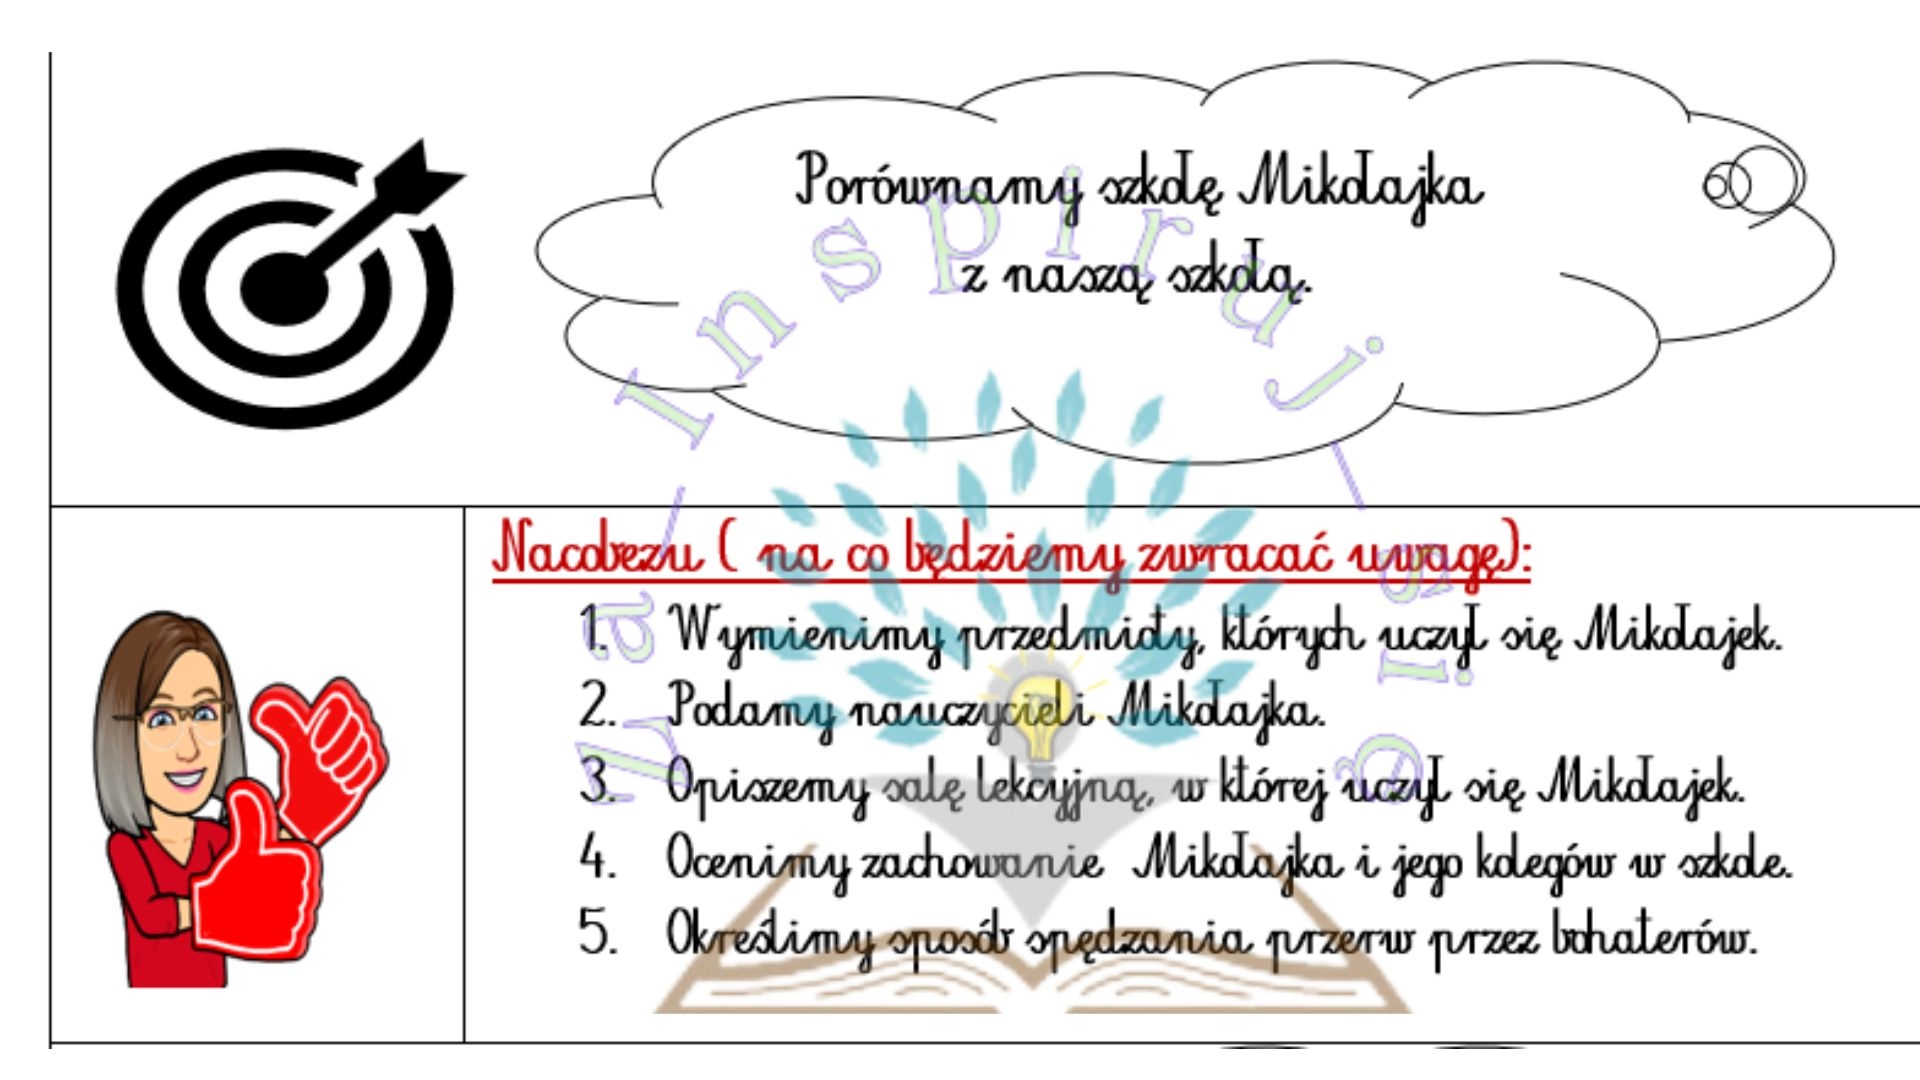 Porównamy szkołę Mikołajka
z naszą szkołą.
Nacobezu ( na co będziemy zwracać uwagę):
1. Wymienimy przedmioty, których uczył się Mikołajek.
2. Podamy nauczycieli Mikołajka.
3. Opiszemy salę lekcyjną, w której uczył się Mikołajek.
4. Ocenimy zachowanie Mikołajka i jego kolegów w szkole.
5. Określimy sposób spędzania przerw przez bohaterów.
Za_Inspiruj_się